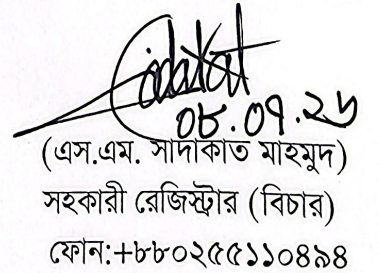 Sadakat
০৮.০৭.২৬
(এস.এম. সাদাকাত মাহমুদ)
সহকারী রেজিস্ট্রার (বিচার)
ফোন:+৮৮০২৫৫১১০৪৯৪